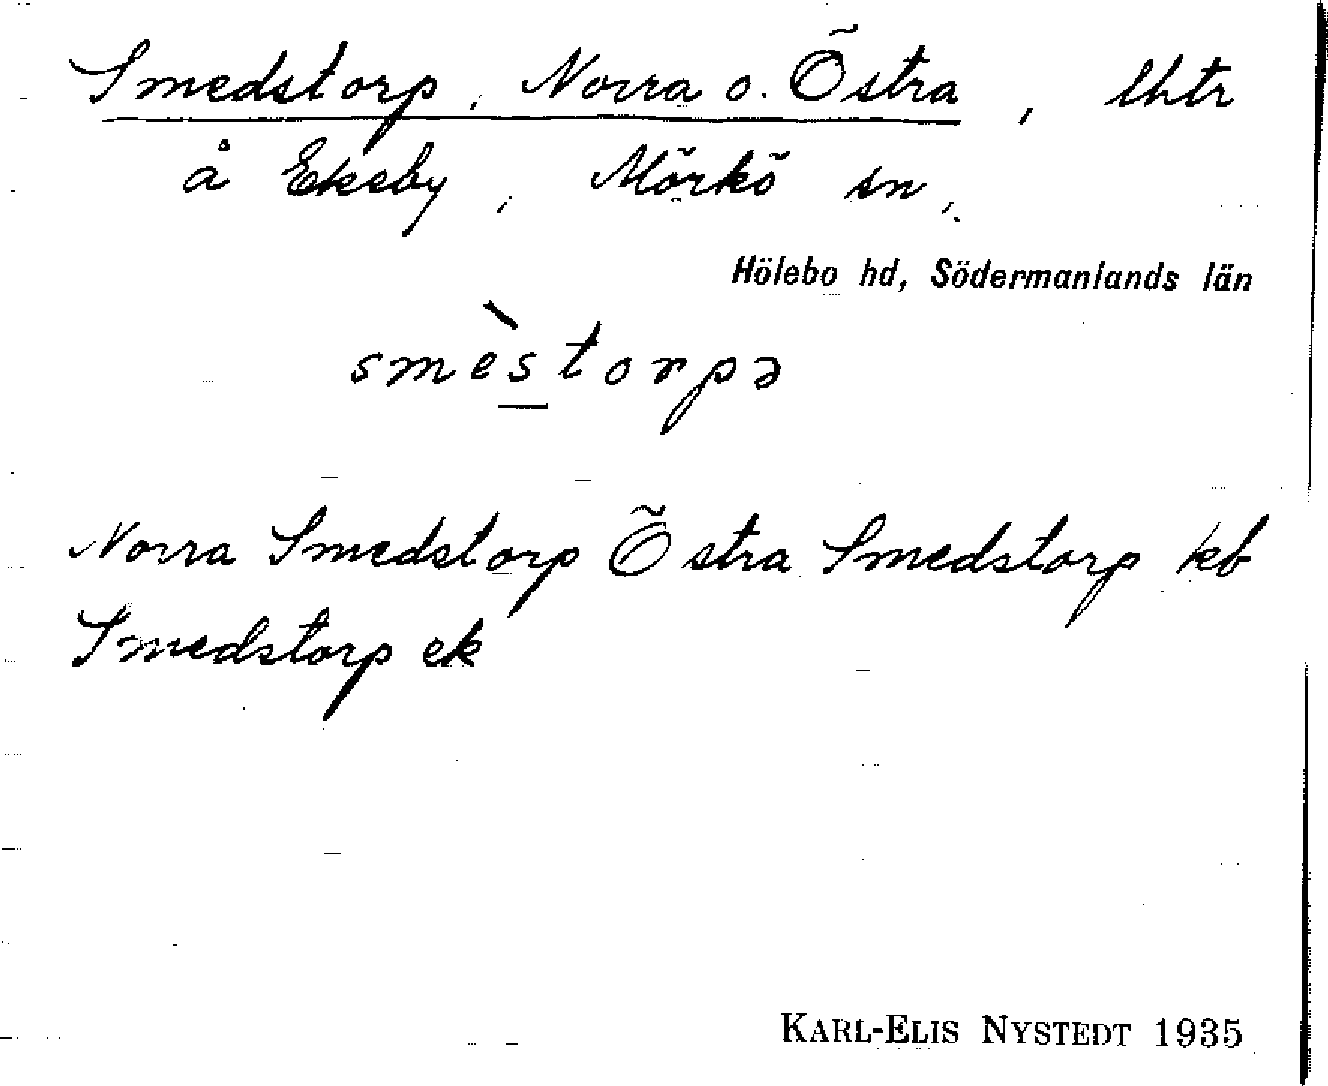 Smedstorp, Norra o. Östra, lhtr
å Ekeby, Mörkö sn,
Hölebo hd, Södermanlands län
smèstorpə
Norra Smedstorp Östra Smedstorp kb
Smedstorp ek
KARL-ELIS NYSTEDT 1935